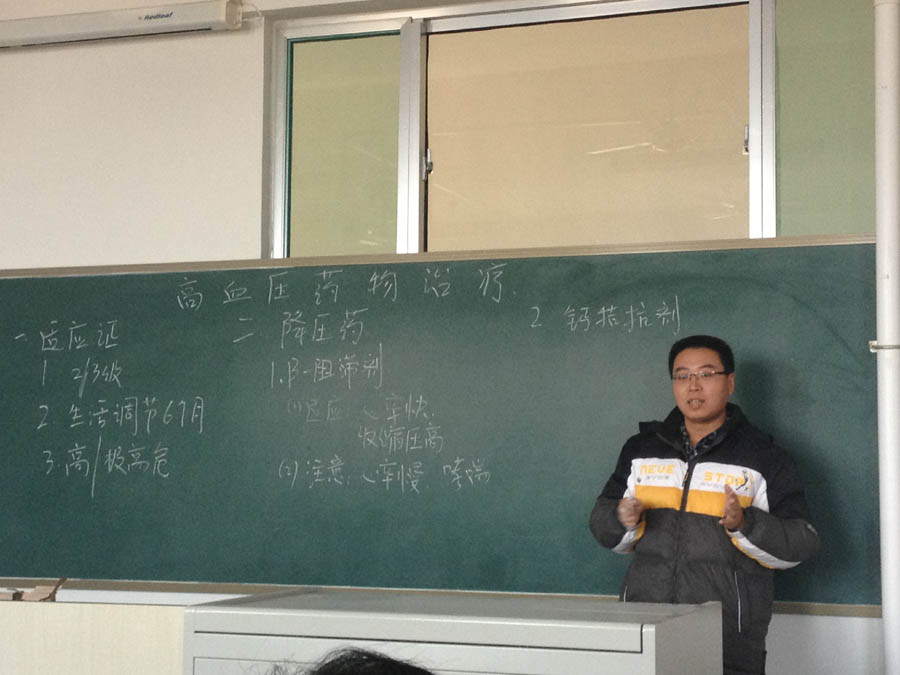 Redleaf
高血压药物治疗.
一 适应证
1 2/3级
2 生活调节6个月
3.高/极高危
二 降压药
1.β-阻滞剂
(1)适应:心率快.
收缩压高
(2)注意:心率慢 哮喘
2 钙拮抗剂
MEVE
STOP